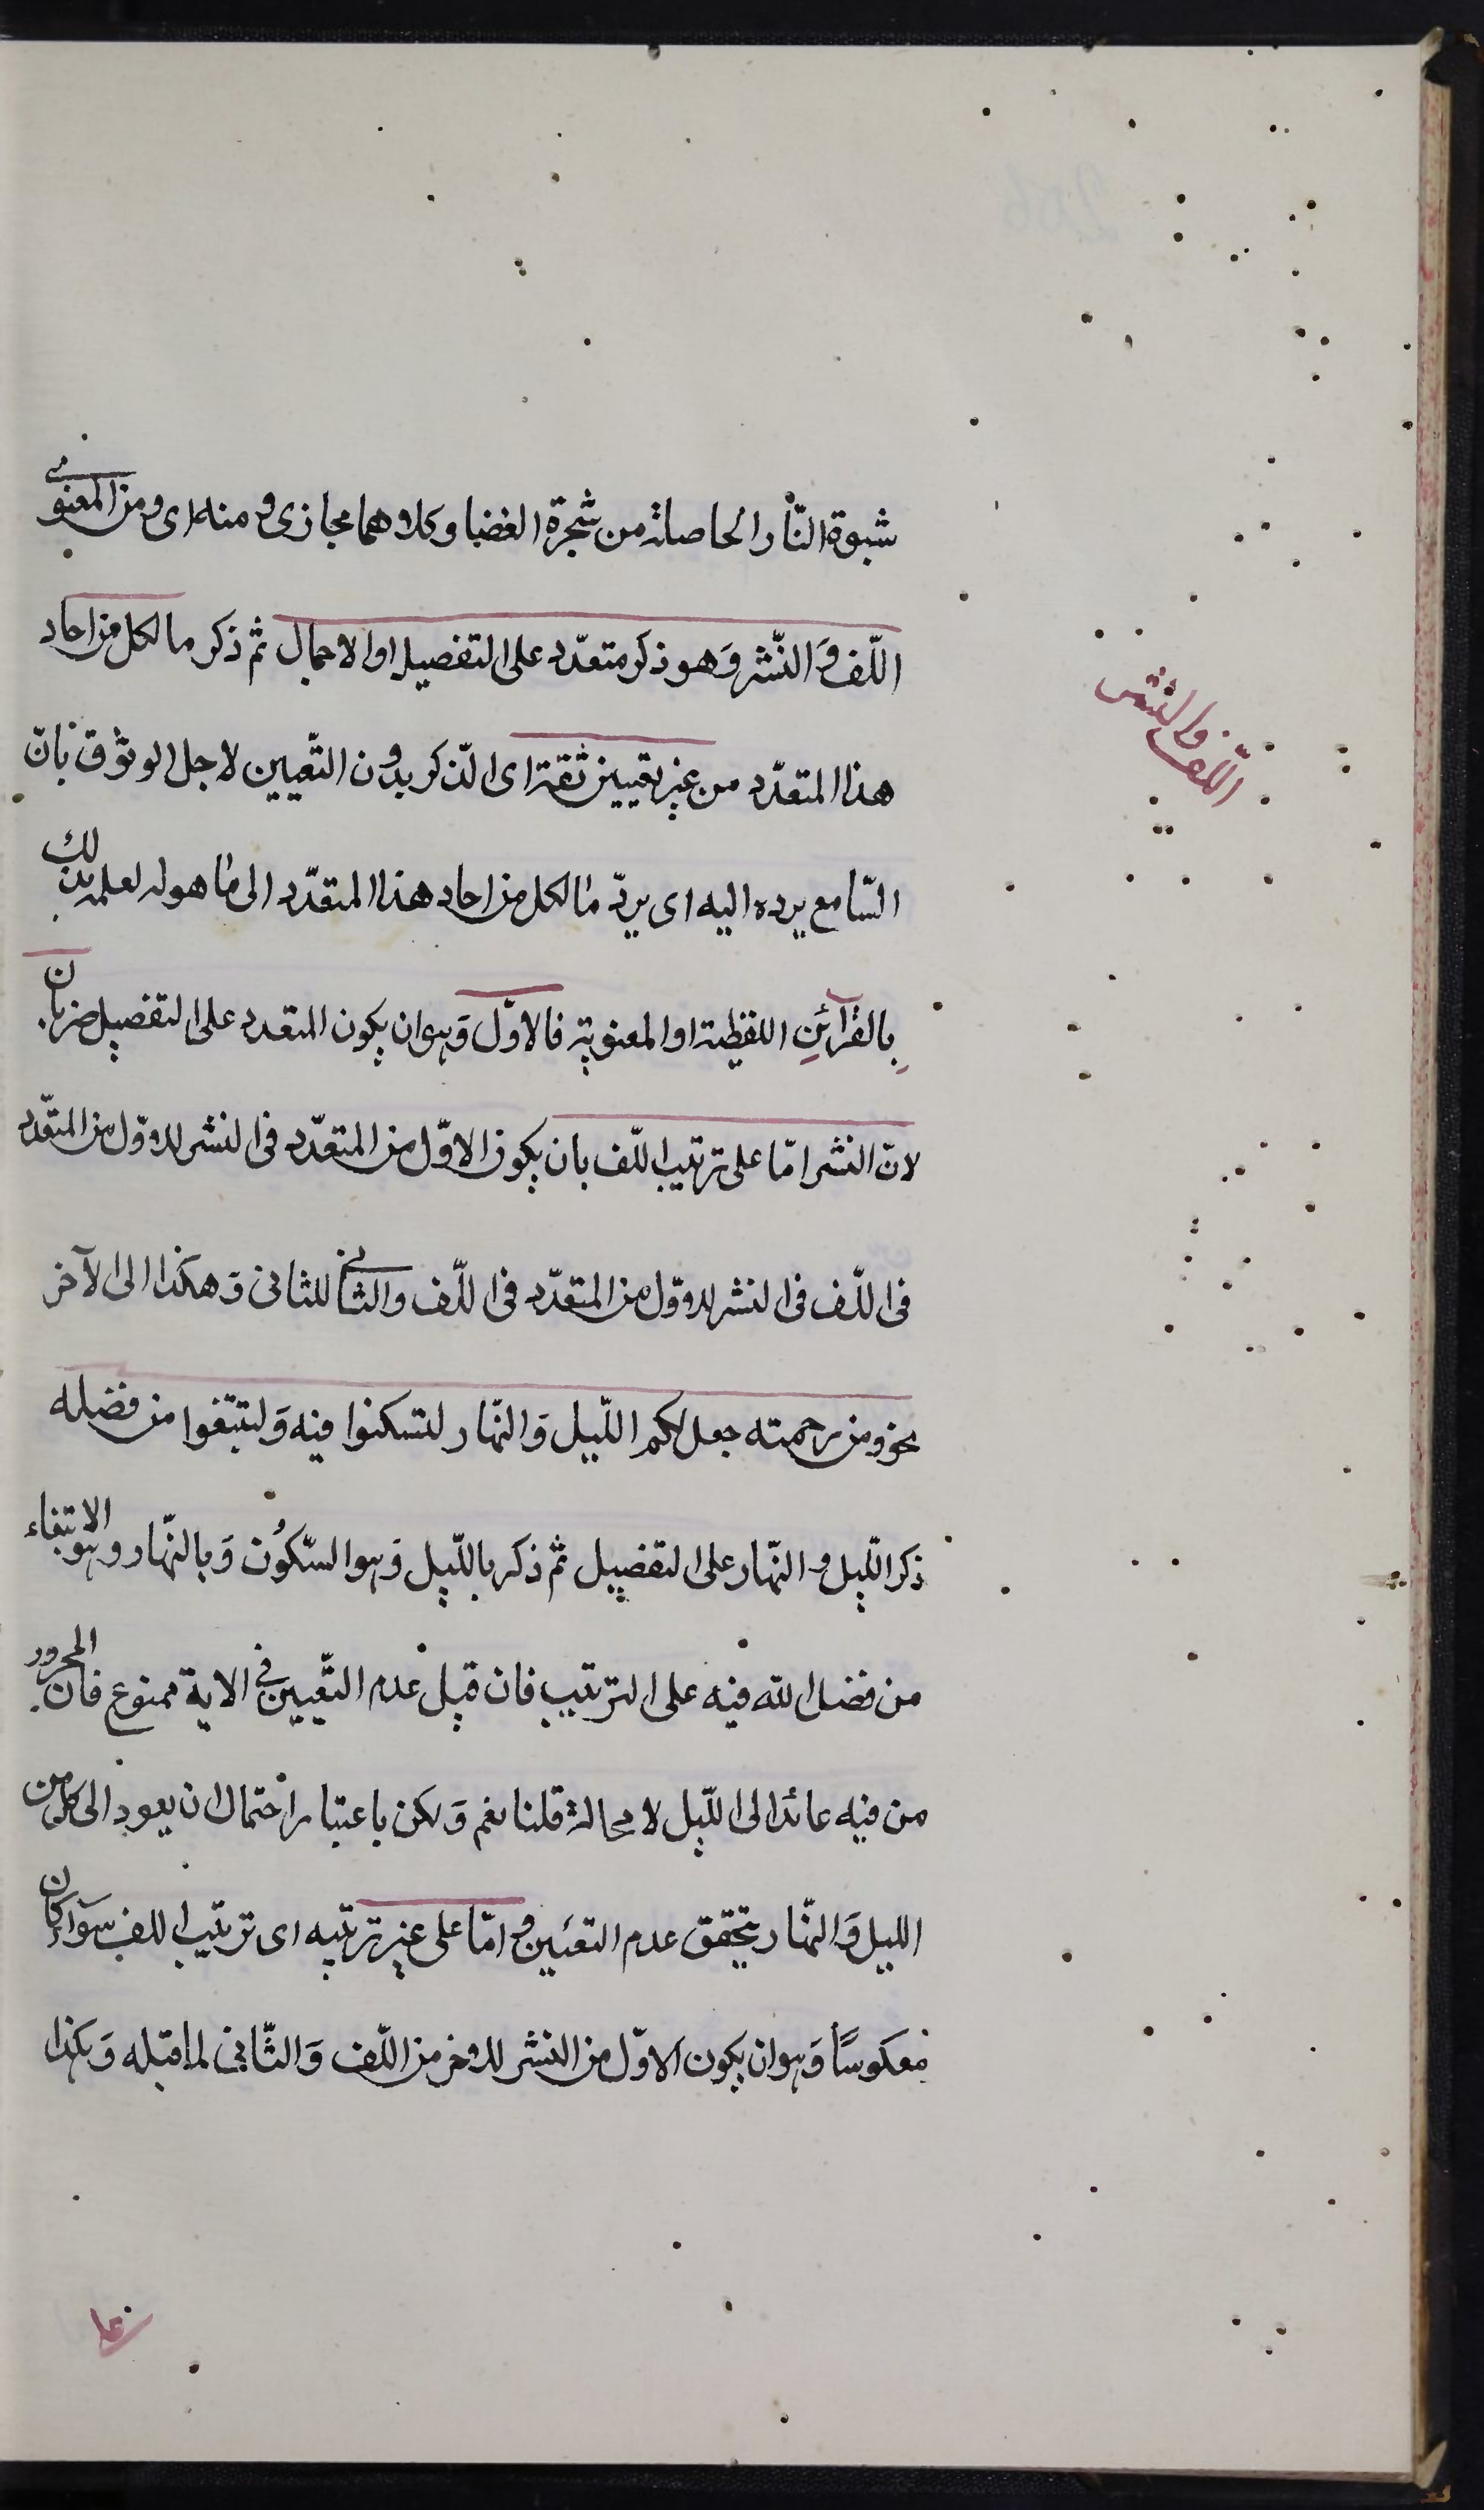 شبوة النار الحاصلة من شجرة الغضا وكلاهما مجازى ومنه اى ومن المعنوى
اللّف وَالنّشر وَهو ذكر متعدّد على التفصيل او الاجمال ثم ذكر ما لكل من احاد
اللّف والنشر
هذا المتعدّد من غير تعيين ثقة اى الذكر بدون التّعيين لاجل الوثوق بانّ
السّامع يرده اليه اى يردّ ما لكل من احاد هذا المتعدّد الى ما هو له لعلمه بذلك
بالقرآئنِ اللفظية او المعنوية فالاوّل وَهو ان يكون المتعدد على التفصيل ضربان
لانّ النشر امّا على ترتيب اللّف بان يكون الاوّل من المتعدّد فى النشر للاوّل من المتعّدد
فى اللّف فى النشر للاوّل من المتعدّد فى اللّف والثانى للثانى وَهكذا الى الآخر
نحو ومن رحمته جعل لكم اللّيل وَالنّهار لتسكنوا فيه وَلتبتغوا من فضله
ذكر اللّيل و النّهار على التفصيل ثم ذكر ما لليل وَهو السّكوُن وَما للنّهار وهو الابتغاء
من فضل الله فيه على الترتيب فان قيل عدم التّعيين فى الاية ممنوع فان المجرور
من فيه عائد الى اللّيل لا محالة قلنا نعم وَلكن باعتبار احتمال ان يعود الى كل من
الليل وَالنّهار يتحقق عدم التعيين و امّا على غير ترتيبه اى ترتيب اللف سوآء كان
معكوساً وَهو ان يكون الاوّل من النشر للاخر من اللّف وَالثّانى لما قبله وَهكذا